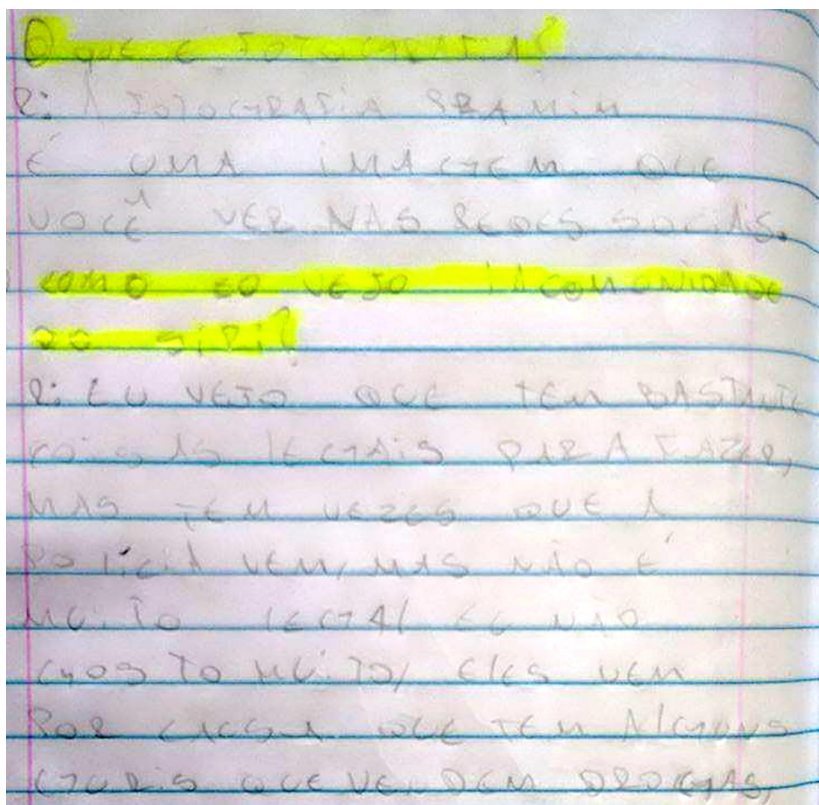 O que é FOTOGRAFIA?
R: A FOTOGRAFIA PRA MIM
É UMA IMAGEM QUE
VOCÊ VER NAS REDES SOCIAS.
COMO EO VEJO A COMUNIDADE
DO
R: EU VEJO QUE TEM BASTANTE
COISAS LEGAIS PARA FAZER,
MAS TEM VEZES QUE A
POLÍCIA VEM, MAS NÃO É
MUITO LEGAL EU NÃO
GOSTO MUITO, ELES VEM
POR CAUSA QUE TEM ALGUNS
QUE VENDEM DROGAS,